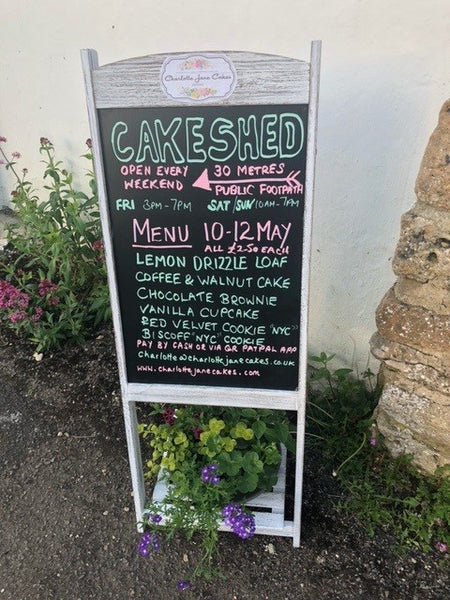 Charlotte Jane Cakes
CAKESHED
OPEN EVERY WEEKEND
30 METRES
PUBLIC FOOTPATH
FRI 3PM-7PM SAT/SUN 10AM-7PM
MENU 10-12 MAY
ALL £2.50 EACH
LEMON DRIZZLE LOAF
COFFEE & WALNUT CAKE
CHOCOLATE BROWNIE
VANILLA CUPCAKE
RED VELVET COOKIE "NYC"
BISCOFF "NYC" COOKIE
PAY BY CASH OR VIA QR PAYPAL APP
charlotte@charlottejanecakes.co.uk
www.charlottejanecakes.com